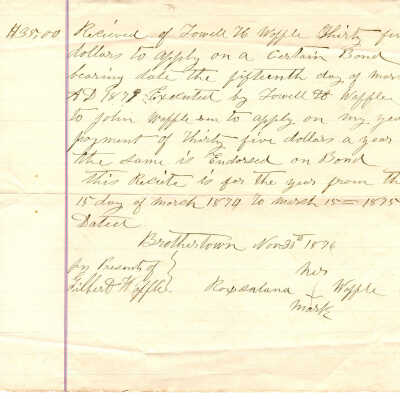 #35.00 Recieved of Towell H Waffle Thirty five
dollars to apply on a Certain Bond
bearing date the fifteenth day of March
AD 1879 Executed by Towell H Waffle
to John Waffle to apply on my year
payment of thirty five dollars a year
the same is Endorsed on Bond
This Recite is for the year from the
15 day of march 1874 to march 15 = 1875
Dated
Brothertown Nov 30th 1876
in Presents of
Gilbert Waffle
her
Roxsalana Waffle
mark